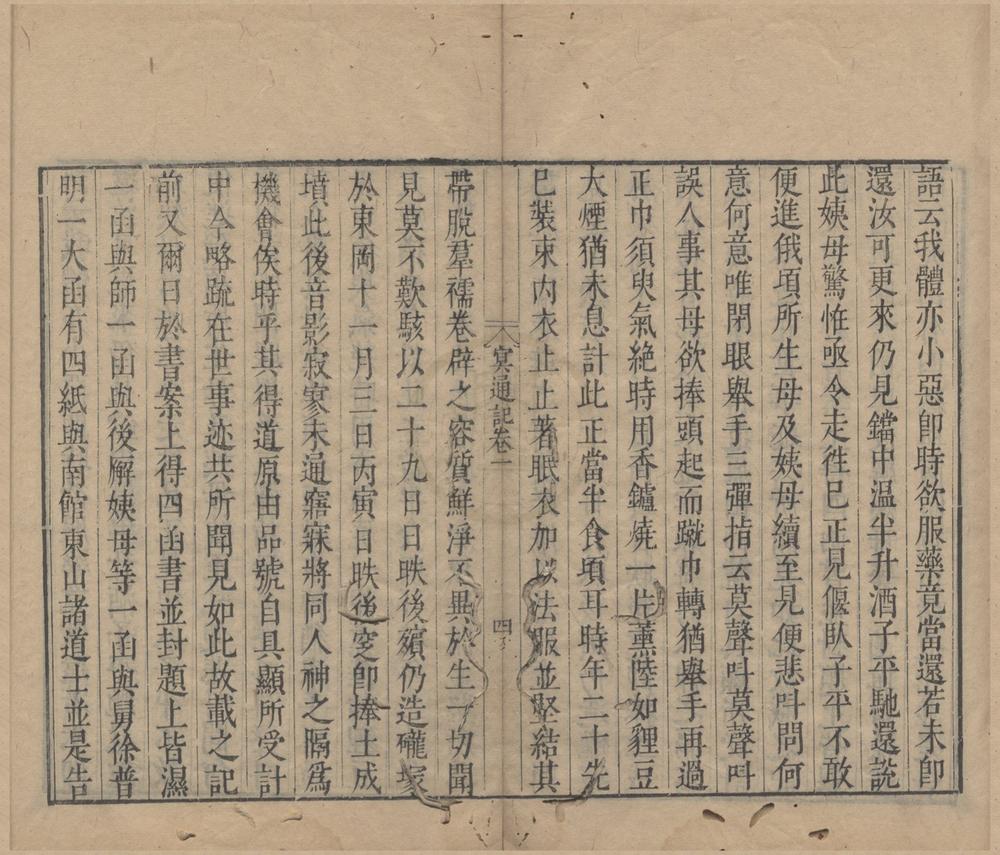 語云我體亦小惡即時欲服藥竟當還若未即
還汝可更來仍見鐺中温半升酒子平馳還說
此姨母驚恠亟令走徃已正見偃臥子平不敢
便進俄頃所生母及姨母續至見便悲叫問何
意何意唯閉眼舉手三彈指云莫聲叫莫聲叫
誤人事其母欲捧頭起而蹴巾轉猶舉手再過
正巾須臾氣絶時用香鑪燒一片薰陸如貍豆
大煙猶未息計此正當半食頃耳時年二十先
已裝束内衣止止著眠衣加以法服並堅結其
冥通記卷一
四
帶脫羣襦卷辟之容質鮮淨不異於生一切聞
見莫不歎駭以二十九日日昳後殯仍造礲塚
於東岡十一月三日丙寅日昳後窆即捧土成
墳此後音影寂寥未通寤寐將同人神之隔爲
機會俟時乎其得道原由品號自具顯所受計
中今略疏在世事迹共所聞見如此故載之記
前又爾日於書案上得四函書並封題上皆濕
一函與師一函與後廨姨母等一函與舅徐普
明一大函有四紙與南館東山諸道士並是告